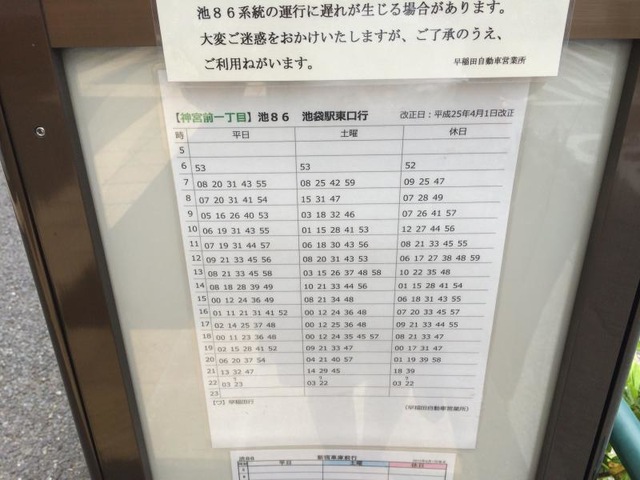 池86系統の運行に遅れが生じる場合があります。
大変ご迷惑をおかけいたしますが、ご了承のうえ、
ご利用ねがいます。 早稲田自動車営業所
【神宮前一丁目】池86 池袋駅東口行 改正日：平成25年4月1日改正
時 平日 土曜 休日
5
6 53 53 52
7 08 20 31 43 55 08 25 42 59 09 25 47
8 07 20 31 41 54 15 31 47 07 28 49
9 05 16 26 40 53 03 18 32 46 07 26 41 57
10 06 19 31 43 55 01 15 28 41 53 12 27 44 56
11 07 19 31 44 57 06 18 30 43 56 08 21 33 45 55
12 09 21 33 45 56 08 20 31 43 53 06 17 27 38 48 59
13 08 21 33 45 58 03 15 26 37 48 58 10 22 35 48
14 08 18 28 39 49 10 21 33 44 56 01 15 28 41 54
15 00 12 24 36 49 08 21 34 48 06 18 31 43 55
16 01 11 21 31 41 52 00 12 24 36 48 07 20 33 45 57
17 02 14 25 37 48 00 12 25 36 48 09 21 33 44 55
18 00 11 23 36 48 00 12 24 35 45 57 08 21 33 47
19 02 15 28 41 52 09 21 33 47 00 17 31 47
20 06 20 37 54 04 21 40 57 01 19 39 58
21 13 32 47 14 29 45 18 39
22 03 23 03 22 03 22
23
【ワ】早稲田行 （早稲田自動車営業所）
池86
平日 土曜 休日